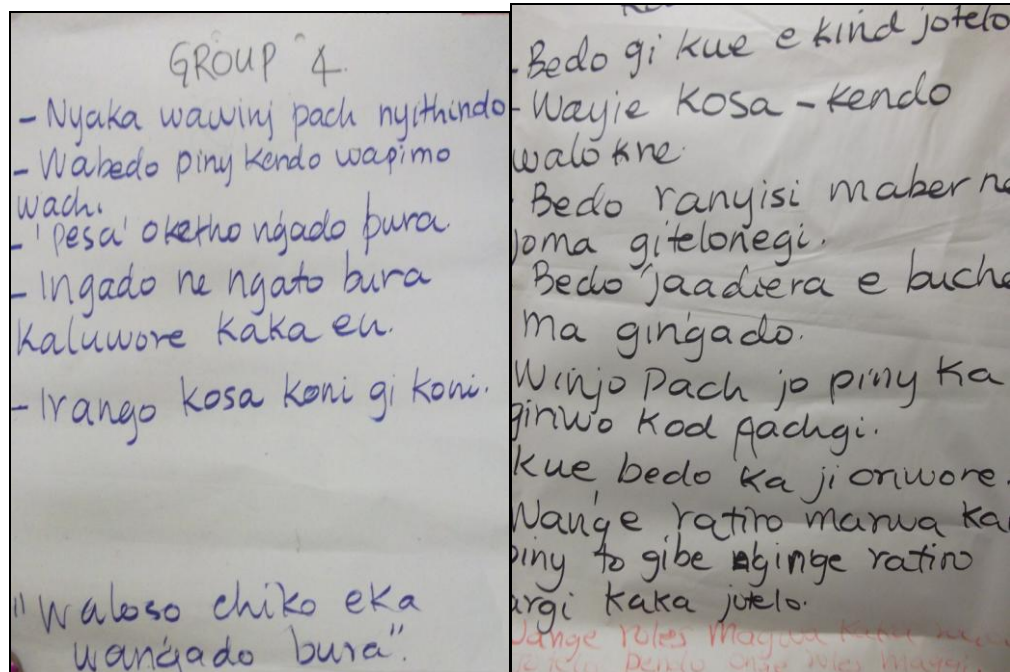 GROUP 4.
- Nyaka wawinj pach nyithindo
- Wabedo piny kendo wapimo
wach.
- 'pesa' oketho ng'ado bura.
- Ingado ne ngato bura
Kaluwore kaka en.
- Irango kosa koni gi koni.
"Waloso chiko eka
wang'ado bura".
- Bedo gi kue e kind jotelo
- Wayie kosa - kendo
walokre.
Bedo ranyisi maber ne
joma gitelonegi.
Bedo jaadiera e buche
ma ging'ado.
Winjo Pach jo piny ka
giriwo kod pachgi.
Kue bedo ka ji oriwore.
Wang'e ratiro marwa ka
piny to gibe nginge ratiro
argi kaka jotelo.